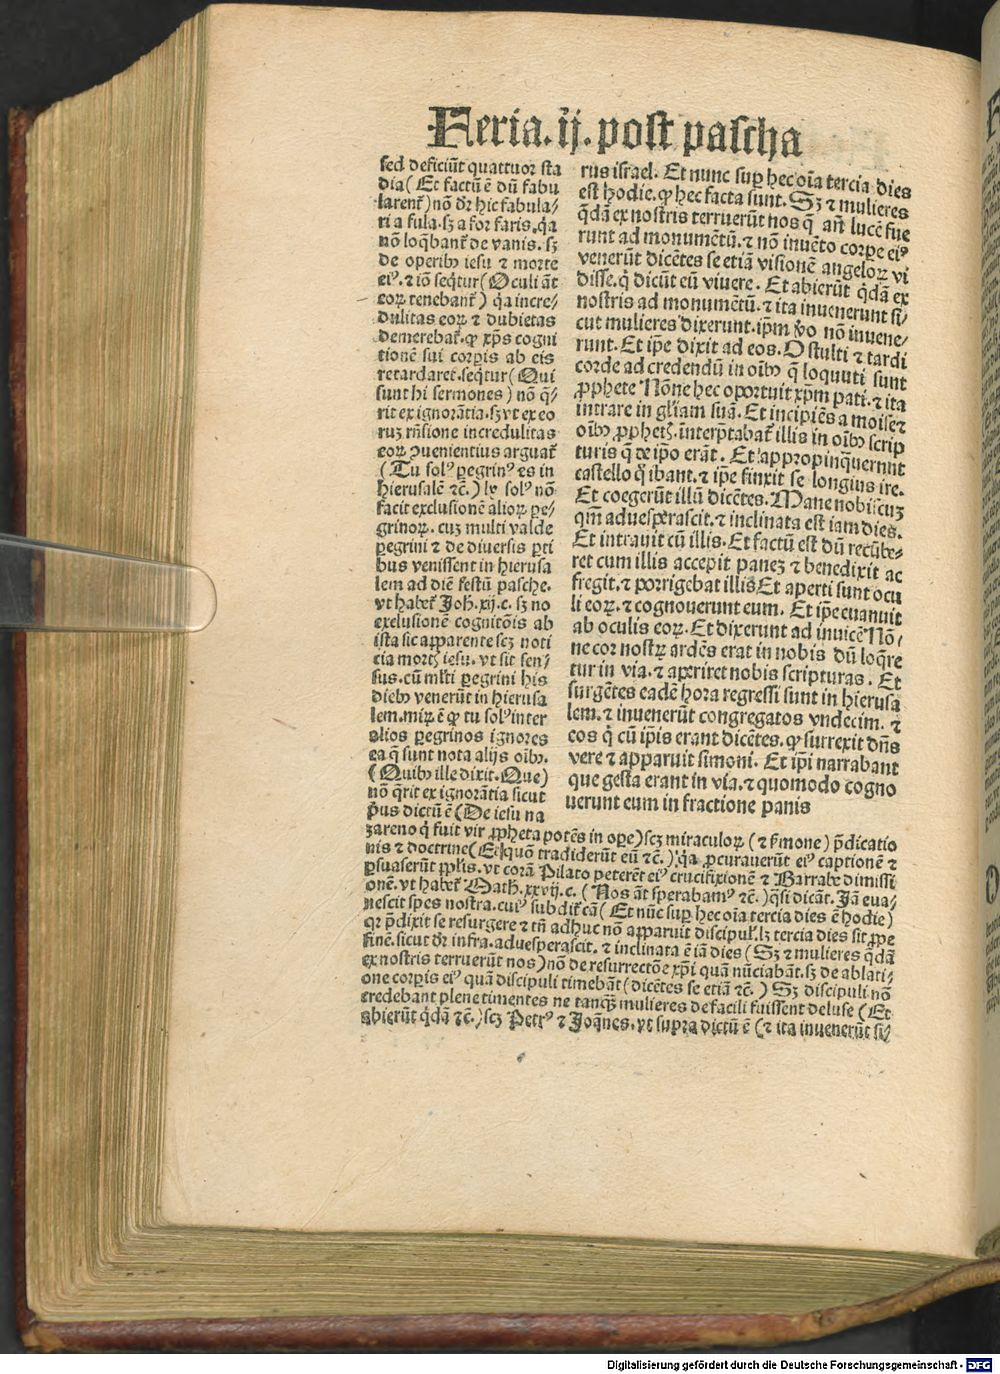 Feria. ij. post pascha
sed deficiūt quattuor sta
dia (Et factū ē dū fabu
larent᷑) nō dr̄ hic fabula-
ri a fula. sꝫ a for faris. q̇a
nō loq̄bant᷑ de vanis. sꝫ
de operibꝫ iesu ⁊ morte
eiꝰ. ⁊ iō seq̄tur (Oculi āt
eoꝝ tenebant᷑) q̇a incre-
dulitas eoꝝ ⁊ dubietas
demerebat᷑. ꝙ xp̄s cogni
tionē sui corpis ab eis
retardaret. seq̄tur (Qui
sunt hi sermones) nō q̄-
rit ex ignorātia. sꝫ vt ex eo
ruꝫ rn̄sione incredulitas
eoꝝ ꝯuenientius arguat᷑
(Tu solꝰ ꝑegrinꝰ es in
hierusalē ⁊c̄.) ly solꝰ nō
facit exclusionē alioꝝ ꝑe-
grinoꝝ. cuꝫ multi valde
ꝑegrini ⁊ de diuersis ꝑti
bus venissent in hierusa
lem ad diē festū pasche.
vt habet᷑ Joh. xij. c. sꝫ no
exclusionē cognitōis ab
ista sic apparente scꝫ noti
cia mortꝭ iesu. vt sit sen-
sus. cū ml̄ti ꝑegrini his
diebꝫ venerūt in hierusa
lem. miꝝ ē ꝙ tu solꝰ inter
alios ꝑegrinos ignores
ea q̄ sunt nota alijs oībꝫ.
(Quibꝫ ille dixit. Que)
nō q̄rit ex ignorātia sicut
pͥus dictū ē (De iesu na
rus israel. Et nunc suꝑ hec oīa tercia dies
est hodie. ꝙ hec facta sunt. Sꝫ ⁊ mulieres
q̄dā ex nostris terruerūt nos q̄ an̄ lucē fue
runt ad monumētū. ⁊ nō inuēto corpe eiꝰ
venerūt dicētes se etiā visionē angeloꝝ vi
disse. q̇ dicūt eū viuere. Et abierūt q̇dā ex
nostris ad monumētū. ⁊ ita inuenerunt si-
cut mulieres dixerunt. ip̄m v̄o nō inuene-
runt. Et ip̄e dixit ad eos. O stulti ⁊ tardi
corde ad credendū in oībꝫ q̄ loquuti sunt
ꝓphete Nōne hec oportuit xp̄m pati. ⁊ ita
intrare in gl̄iam suā. Et incipiēs a moise ⁊
oībꝫ ꝓphetꝭ. interp̄tabat᷑ illis in oībꝫ scrip
turis q̄ de ip̄o erāt. Et appropinq̄uerunt
castello q̇ ibant. ⁊ ip̄e finxit se longius ire.
Et coegerūt illū dicētes. Mane nobiscuꝫ
qm̄ aduesperascit. ⁊ inclinata est iam dies.
Et intrauit cū illis. Et factū est dū recūbe-
ret cum illis accepit paneꝫ ⁊ benedixit ac
fregit. ⁊ porrigebat illis Et aperti sunt ocu
li eoꝝ. ⁊ cognouerunt eum. Et ip̄e euanuit
ab oculis eoꝝ. Et dixerunt ad inuicē Nō-
ne cor nostꝝ ardēs erat in nobis dū loq̄re
tur in via. ⁊ aperiret nobis scripturas. Et
surgētes eadē hora regressi sunt in hierusa
lem. ⁊ inuenerūt congregatos vndecim. ⁊
eos q̇ cū ip̄is erant dicētes. ꝙ surrexit dn̄s
vere ⁊ apparuit simoni. Et ip̄i narrabant
que gesta erant in via. ⁊ quomodo cogno
uerunt eum in fractione panis
zareno q̇ fuit vir ꝓpheta potēs in oꝑe) scꝫ miraculoꝝ (⁊ ẜmone) p̄dicatio
nis ⁊ doctrine (Et quō tradiderūt eū ⁊c̄.) q̇a ꝓcurauerūt eiꝰ captionē ⁊
ꝑsuaserūt ppl̄is. vt corā Pilato peterēt eiꝰ crucifixionē ⁊ Barrabe dimissi
onē. vt habet᷑ Math. xxvij. c. (Nos āt sperabamꝰ ⁊c̄.) q̄si dicāt. Jā eua-
nescit spes nostra. cuiꝰ subdit᷑ cā (Et nūc suꝑ hec oīa tercia dies ē hodie)
qꝛ p̄dixit se resurgere ⁊ tn̄ adhuc nō apparuit discipul᷑. lꝫ tercia dies sit ꝓpe
finē. sicut dr̄ infra. aduesperascit. ⁊ inclinata ē iā dies (Sꝫ ⁊ mulieres q̄dā
ex nostris terruerūt nos) nō de resurrectōe xp̄i quā nūciabāt. sꝫ de ablati-
one corpis eiꝰ quā discipuli timebāt (dicētes se etiā ⁊c̄.) Sꝫ discipuli nō
credebant plene timentes ne tanqꝫ mulieres de facili fuissent deluse (Et
abierūt q̇dā ⁊c̄.) scꝫ Petrꝰ ⁊ Joānes. vt supra dictū ē (⁊ ita inuenerūt si-
Digitalisierung gefördert durch die Deutsche Forschungsgemeinschaft - DFG